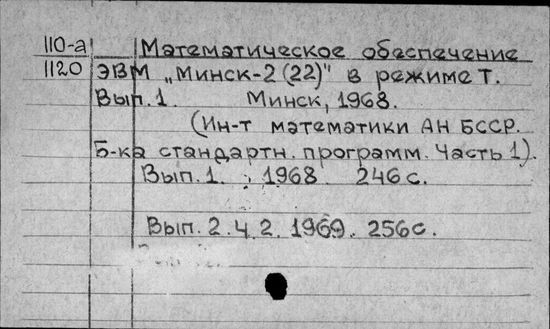 110-а Математическое обеспечение
1120 ЭВМ „Минск-2 (22)" в режиме Т.
Вып. 1. Минск, 1968.
(Ин-т математики АН БССР.
Б-ка стандартн. программ. Часть 1).
Вып. 1. 1968. 246 с.
Вып. 2. Ч. 2. 1969. 256 с.